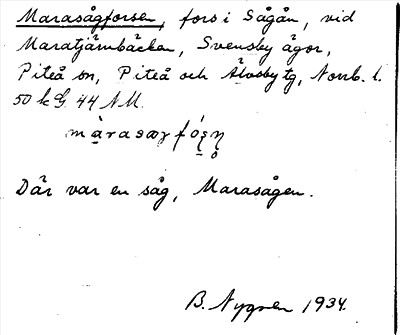 Marasågforsen, fors i Sågån, vid
Maratjärnbäcken, Svensby ägor,
Piteå sn, Piteå och Älvsby tg, Norrb. l.
50 k G. 44 N M.
Där var en såg, Marasågen.
B. Nygren 1934.